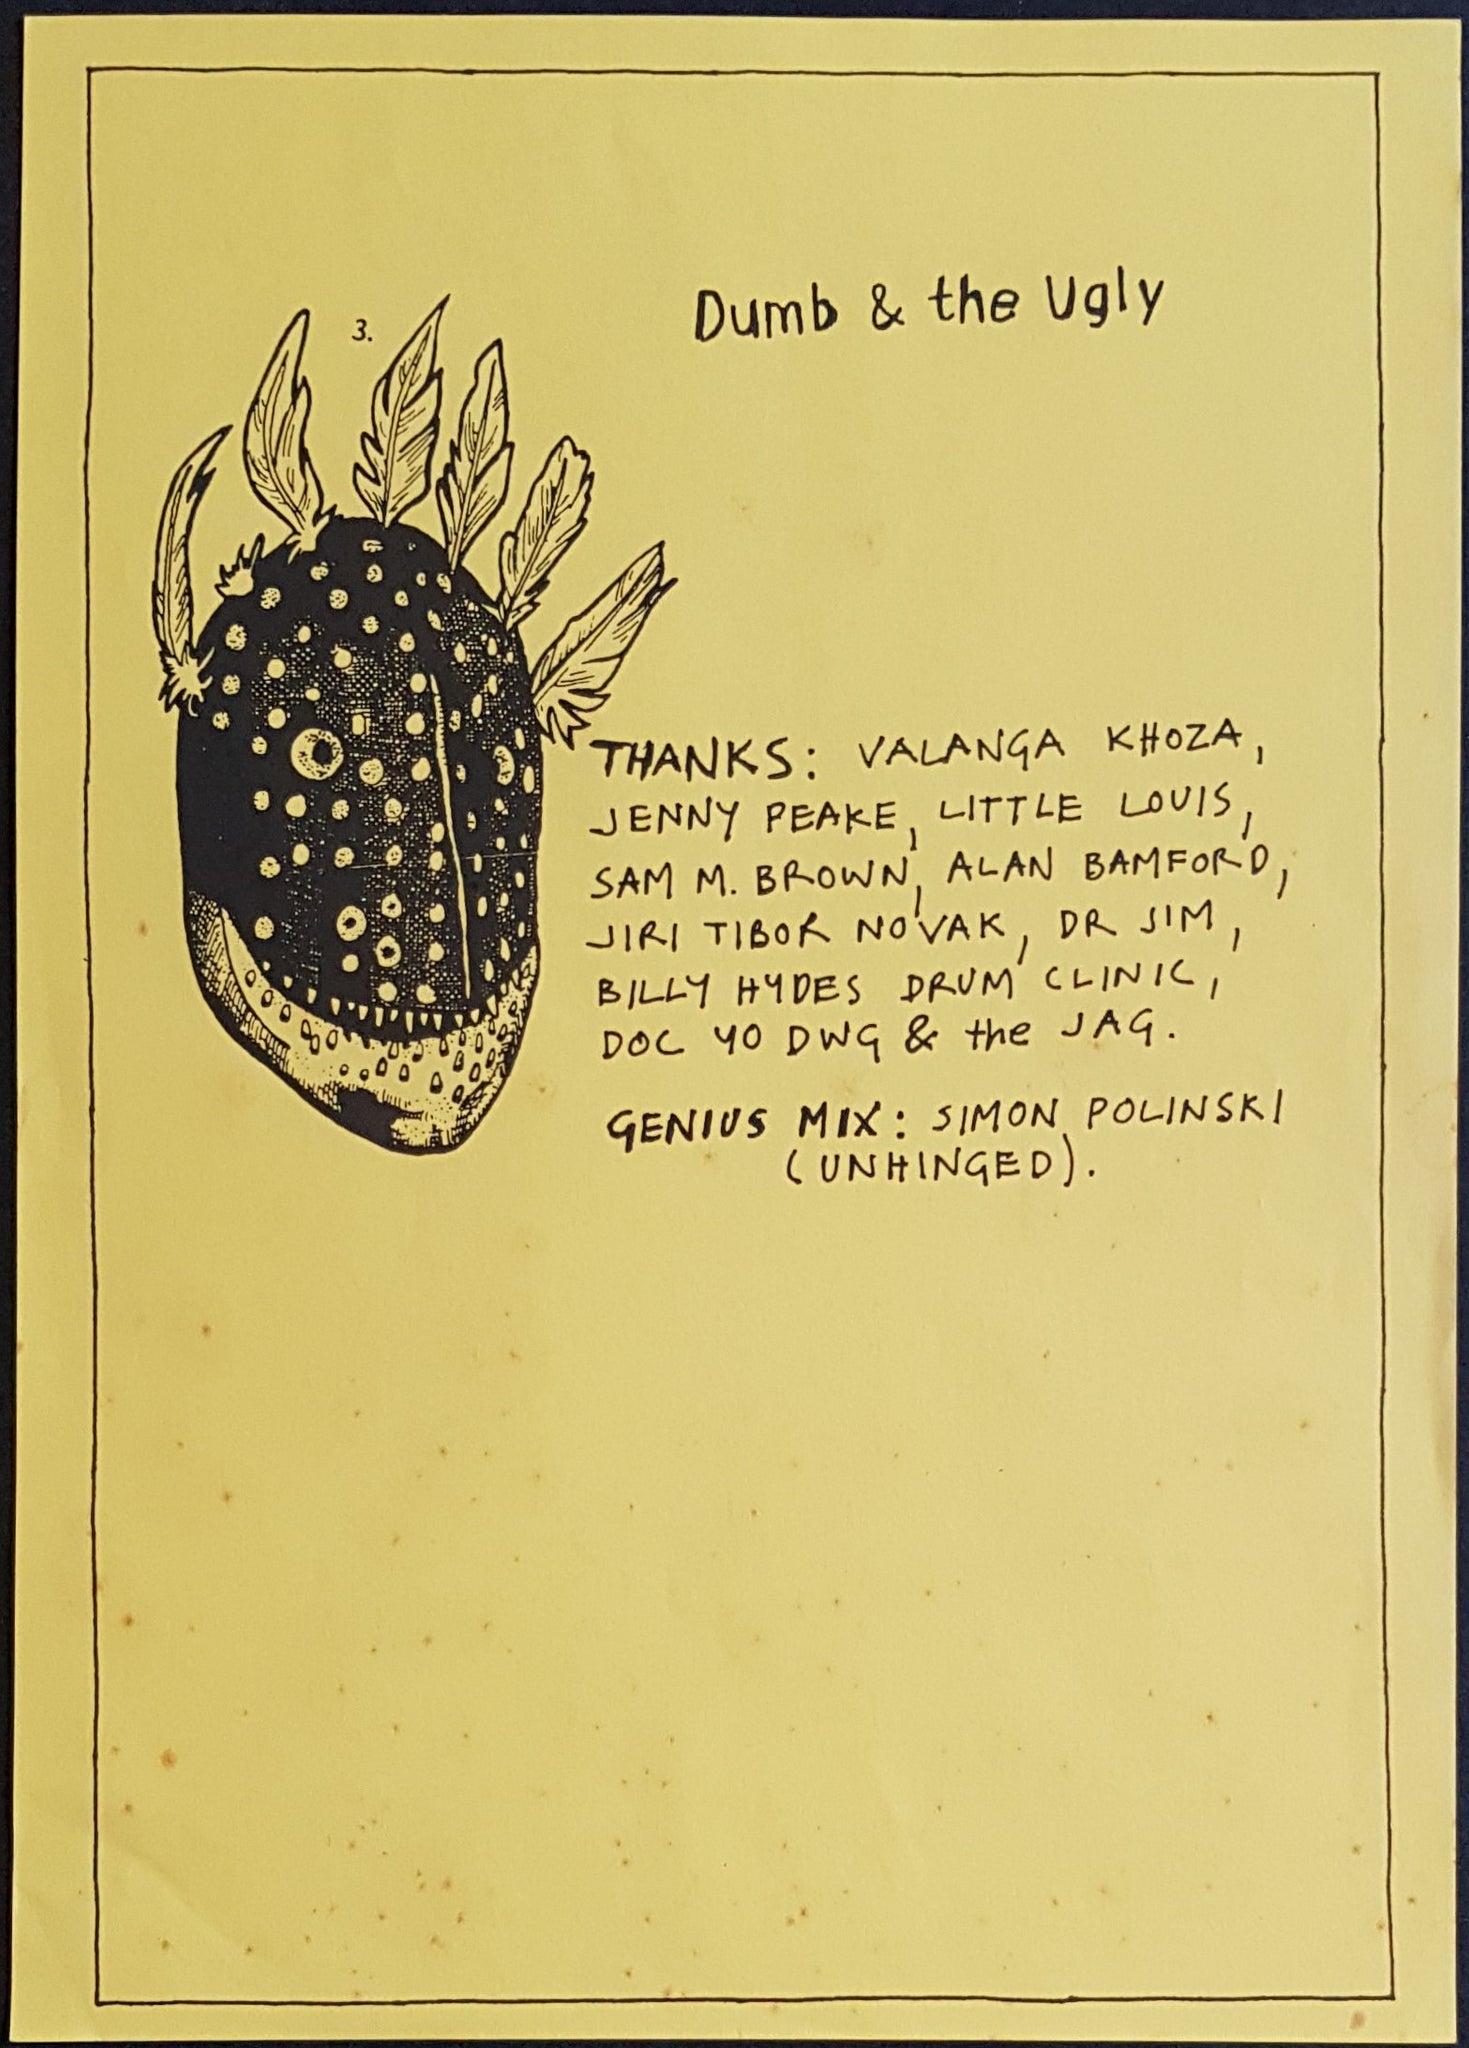 Dumb & the Ugly
3.
THANKS: VALANGA KHOZA,
JENNY PEAKE, LITTLE LOUIS,
SAM M. BROWN, ALAN BAMFORD,
JIRI TIBOR NOVAK, DR JIM,
BILLY HYDES DRUM CLINIC,
DOC YO DWG & the JAG.
GENIUS MIX: SIMON POLINSKI
(UNHINGED).